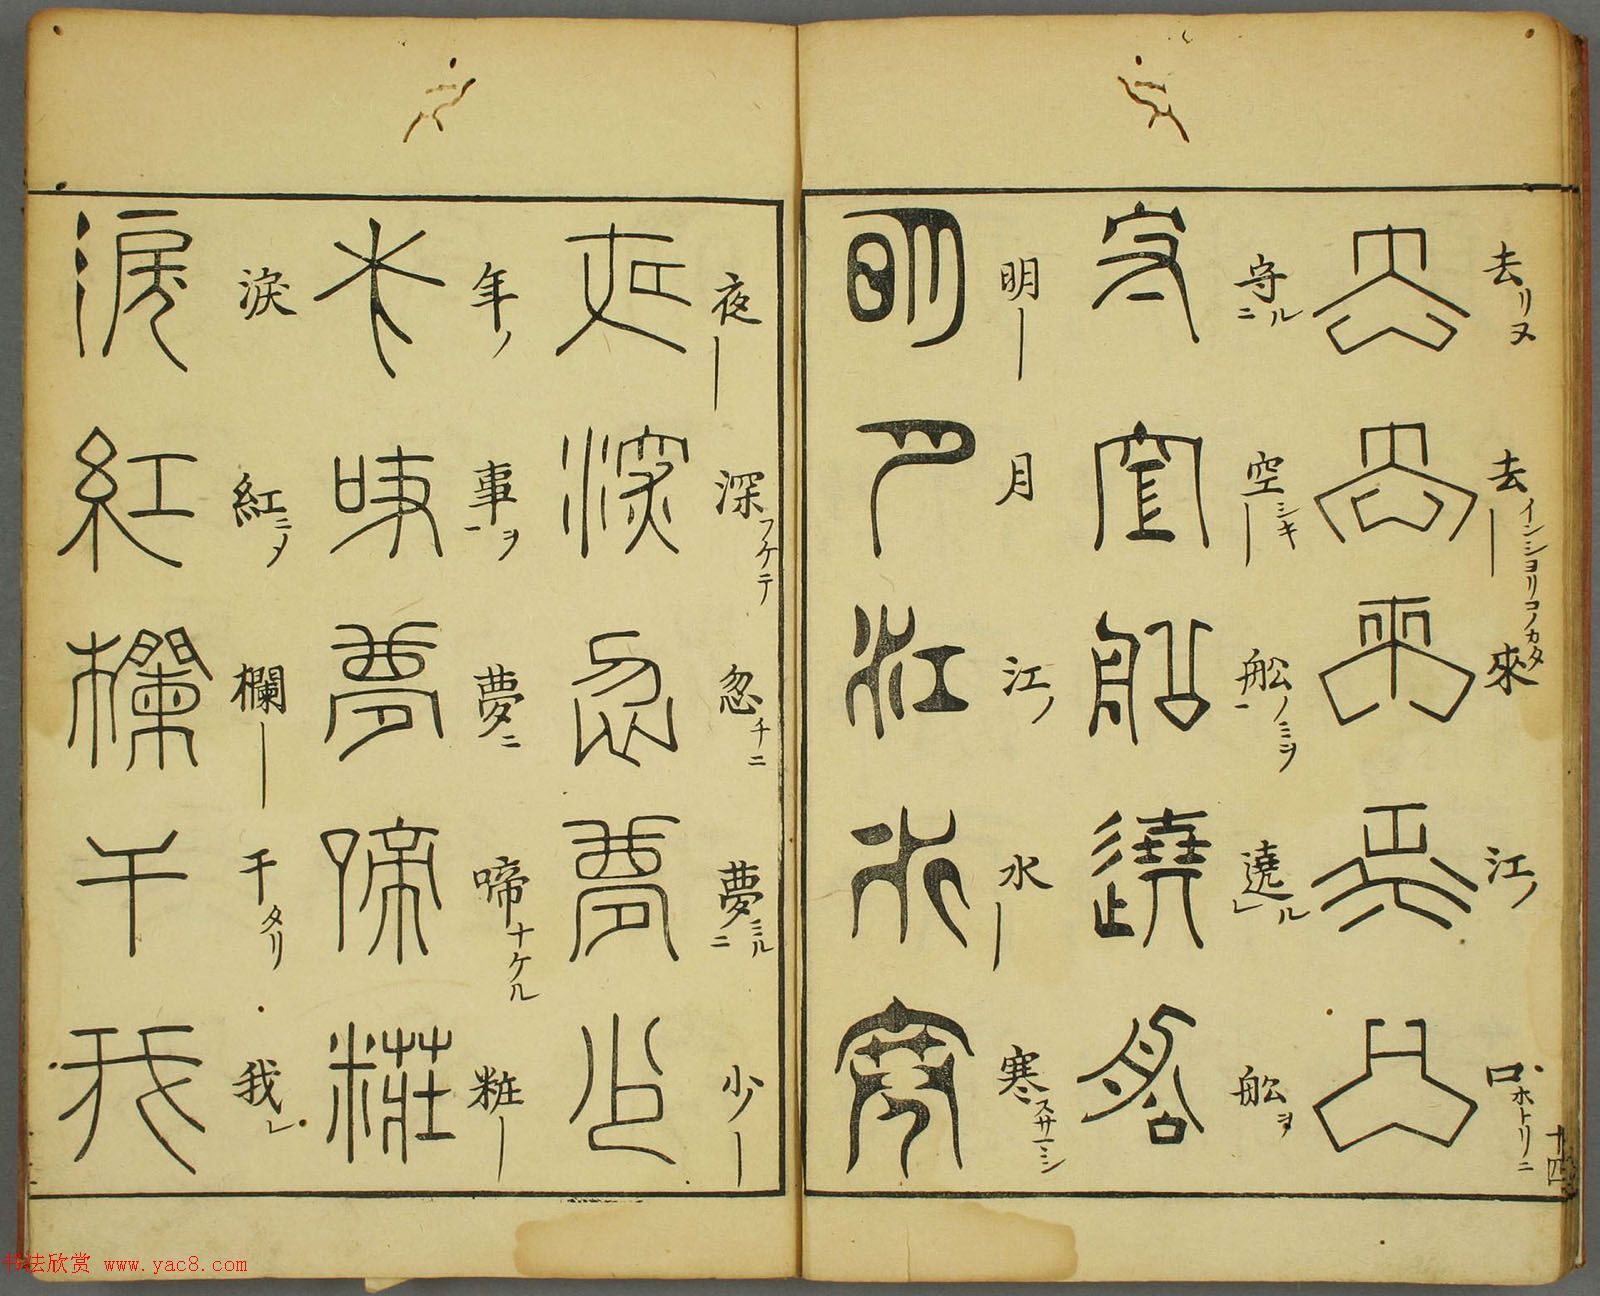 去去來江口
去リヌ 去インシヨリコノカタ 來 江ノ 口ホトリニ
守空船遶船
守ルニ 空シキ 船ノミヲ 遶ル 船ヲ
明月江水寒
明 月 江ノ 水 寒スサマシ
十四
夜深忽夢少
夜 深フケテ 忽チニ 夢ミルニ 少
年事夢啼粧
年ノ 事ヲ 夢ニ 啼ナケル 粧
淚紅欄干我
淚 紅ニメ 欄 干タリ 我
书法欣赏 www.yac8.com